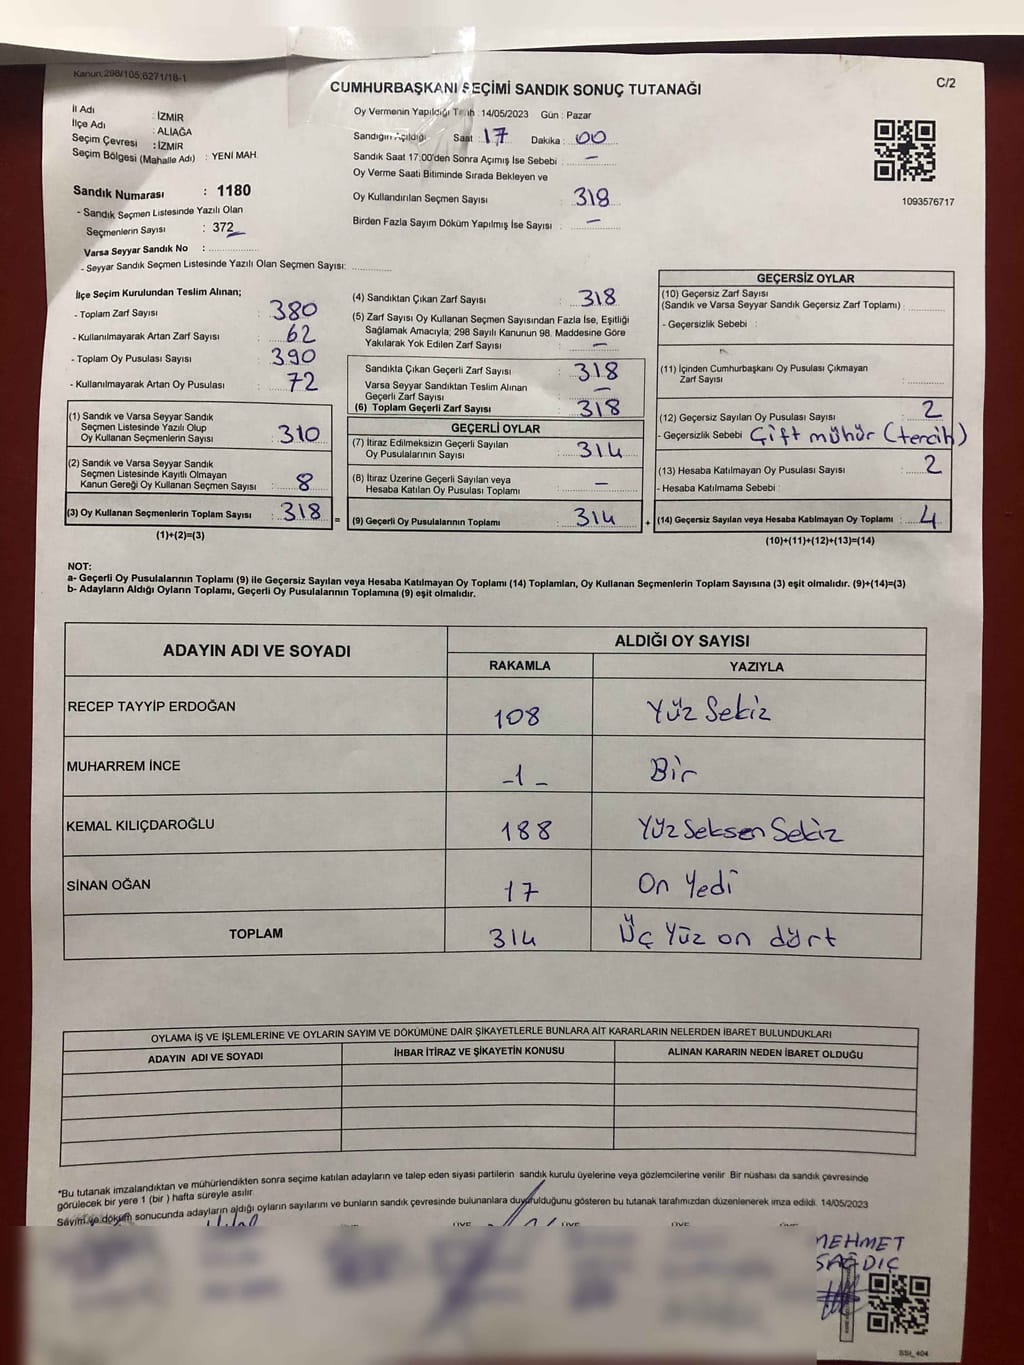 Kanun;298/105,6271/18-1
C/2
CUMHURBAŞKANI SEÇİMİ SANDIK SONUÇ TUTANAĞI
İl Adı : İZMİR
İlçe Adı : ALİAĞA
Seçim Çevresi : İZMİR
Seçim Bölgesi (Mahalle Adı) : YENİ MAH.
Sandık Numarası : 1180
- Sandık Seçmen Listesinde Yazılı Olan
Seçmenlerin Sayısı : 372
Varsa Seyyar Sandık No :
- Seyyar Sandık Seçmen Listesinde Yazılı Olan Seçmen Sayısı:
Oy Vermenin Yapıldığı Tarih :14/05/2023 Gün : Pazar
Sandığın Açıldığı Saat : 17 Dakika : 00
Sandık Saat 17:00'den Sonra Açımış İse Sebebi : —
Oy Verme Saati Bitiminde Sırada Bekleyen ve
Oy Kullandırılan Seçmen Sayısı : 318
Birden Fazla Sayım Döküm Yapılmış İse Sayısı : —
1093576717
İlçe Seçim Kurulundan Teslim Alınan;
- Toplam Zarf Sayısı : 380
- Kullanılmayarak Artan Zarf Sayısı : 62
- Toplam Oy Pusulası Sayısı : 390
- Kullanılmayarak Artan Oy Pusulası : 72
(1) Sandık ve Varsa Seyyar Sandık
Seçmen Listesinde Yazılı Olup
Oy Kullanan Seçmenlerin Sayısı : 310
(2) Sandık ve Varsa Seyyar Sandık
Seçmen Listesinde Kayıtlı Olmayan
Kanun Gereği Oy Kullanan Seçmen Sayısı : 8
(3) Oy Kullanan Seçmenlerin Toplam Sayısı : 318 =
(1)+(2)=(3)
(4) Sandıktan Çıkan Zarf Sayısı : 318
(5) Zarf Sayısı Oy Kullanan Seçmen Sayısından Fazla İse, Eşitliği
Sağlamak Amacıyla; 298 Sayılı Kanunun 98. Maddesine Göre
Yakılarak Yok Edilen Zarf Sayısı : —
Sandıkta Çıkan Geçerli Zarf Sayısı : 318
Varsa Seyyar Sandıktan Teslim Alınan
Geçerli Zarf Sayısı : —
(6) Toplam Geçerli Zarf Sayısı : 318
GEÇERLİ OYLAR
(7) İtiraz Edilmeksizin Geçerli Sayılan
Oy Pusulalarının Sayısı : 314
(8) İtiraz Üzerine Geçerli Sayılan veya
Hesaba Katılan Oy Pusulası Toplamı : —
(9) Geçerli Oy Pusulalarının Toplamı : 314 +
GEÇERSİZ OYLAR
(10) Geçersiz Zarf Sayısı
(Sandık ve Varsa Seyyar Sandık Geçersiz Zarf Toplamı) :
- Geçersizlik Sebebi :
(11) İçinden Cumhurbaşkanı Oy Pusulası Çıkmayan
Zarf Sayısı :
(12) Geçersiz Sayılan Oy Pusulası Sayısı : 2
- Geçersizlik Sebebi Çift mühür (tercih)
(13) Hesaba Katılmayan Oy Pusulası Sayısı : 2
- Hesaba Katılmama Sebebi :
(14) Geçersiz Sayılan veya Hesaba Katılmayan Oy Toplamı : 4
(10)+(11)+(12)+(13)=(14)
NOT:
a- Geçerli Oy Pusulalarının Toplamı (9) ile Geçersiz Sayılan veya Hesaba Katılmayan Oy Toplamı (14) Toplamları, Oy Kullanan Seçmenlerin Toplam Sayısına (3) eşit olmalıdır. (9)+(14)=(3)
b- Adayların Aldığı Oyların Toplamı, Geçerli Oy Pusulalarının Toplamına (9) eşit olmalıdır.
ADAYIN ADI VE SOYADI
ALDIĞI OY SAYISI
RAKAMLA YAZIYLA
RECEP TAYYİP ERDOĞAN 108 Yüz Sekiz
MUHARREM İNCE -1- Bir
KEMAL KILIÇDAROĞLU 188 Yüz Seksen Sekiz
SİNAN OĞAN 17 On Yedi
TOPLAM 314 Üç Yüz on dört
OYLAMA İŞ VE İŞLEMLERİNE VE OYLARIN SAYIM VE DÖKÜMÜNE DAİR ŞİKAYETLERLE BUNLARA AİT KARARLARIN NELERDEN İBARET BULUNDUKLARI
ADAYIN ADI VE SOYADI İHBAR İTİRAZ VE ŞİKAYETİN KONUSU ALINAN KARARIN NEDEN İBARET OLDUĞU
*Bu tutanak imzalandıktan ve mühürlendikten sonra seçime katılan adayların ve talep eden siyasi partilerin sandık kurulu üyelerine veya gözlemcilerine verilir Bir nüshası da sandık çevresinde
görülecek bir yere 1 (bir ) hafta süreyle asılır.
Sayım ve döküm sonucunda adayların aldığı oyların sayılarını ve bunların sandık çevresinde bulunanlara duyurulduğunu gösteren bu tutanak tarafımızdan düzenlenerek imza edildi. 14/05/2023
ÜYE ÜYE ÜYE ÜYE
MEHMET
SAĞDIÇ
SSI_404